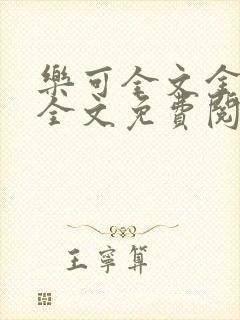 樂可全文全
全文免費閱
王寧算